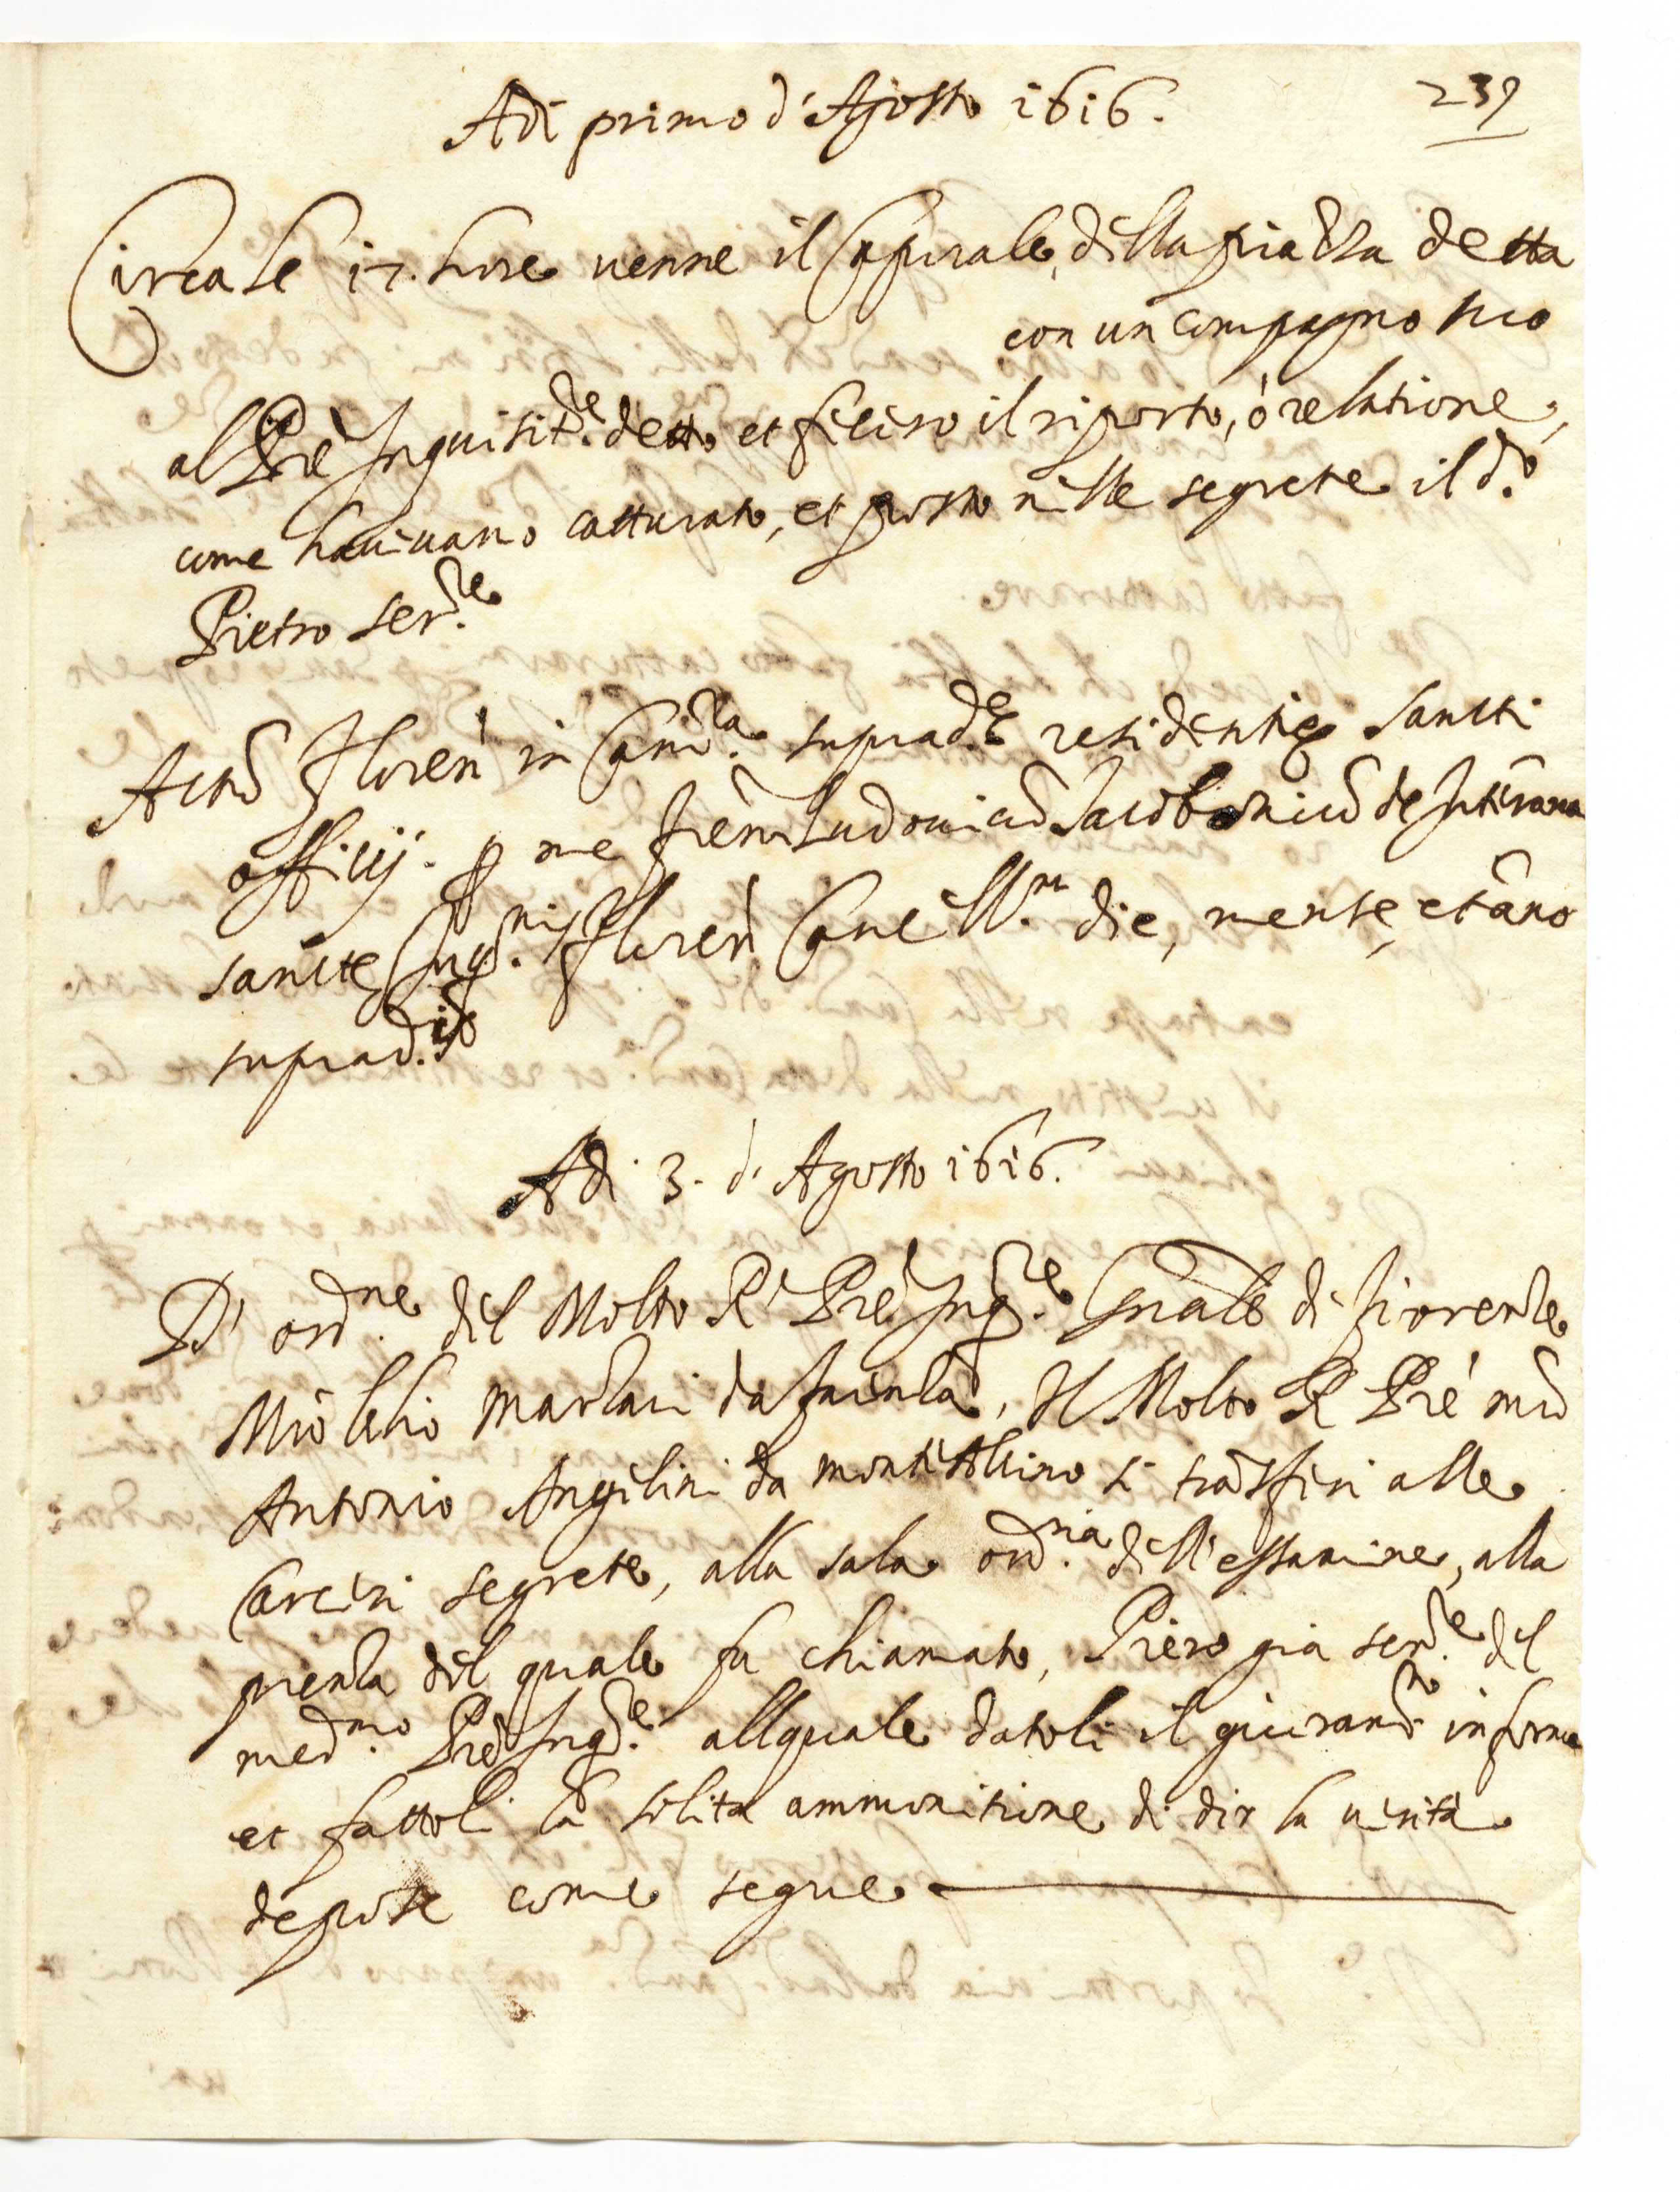 239
Adi primo d'Agosto 1616.
Circa le 17. hore uenne il Caporale della piazza detta
con un compagno suo
al Prè Inquisit.re detto et fecero il riporto, ò relatione,
come haueuano catturato, et posto nelle segrete il d.o
Pietro ser.re
Actũ Floreñ in Canc.a suprad.e residentię Sancti
officij. ꝑ me frẽm Ludouicũ Jacobonicũ de Interãna
sanctę Inq.nis Floreñ Cancell.m die, mense, et ãno
suprad.is
Adi 3. d'Agosto 1616.
D'ord.ne del Molto R. Prè Inq.re Gñale di Fiorenze
Mrõ Lelio Marzari da faenza, Il Molto R Prè mrõ
Antonio Angelini da montealcino si trãsferi alle
Carceri segrete, alla sala ord.ria dell'essamine, alla
prenza del quale fu chiamato, Piero gia ser.re del
med.mo Prè Inq.re allquale datoli il giuram.to in forma
et fattoli la solita ammonitione di dir la uerità
depose come segue